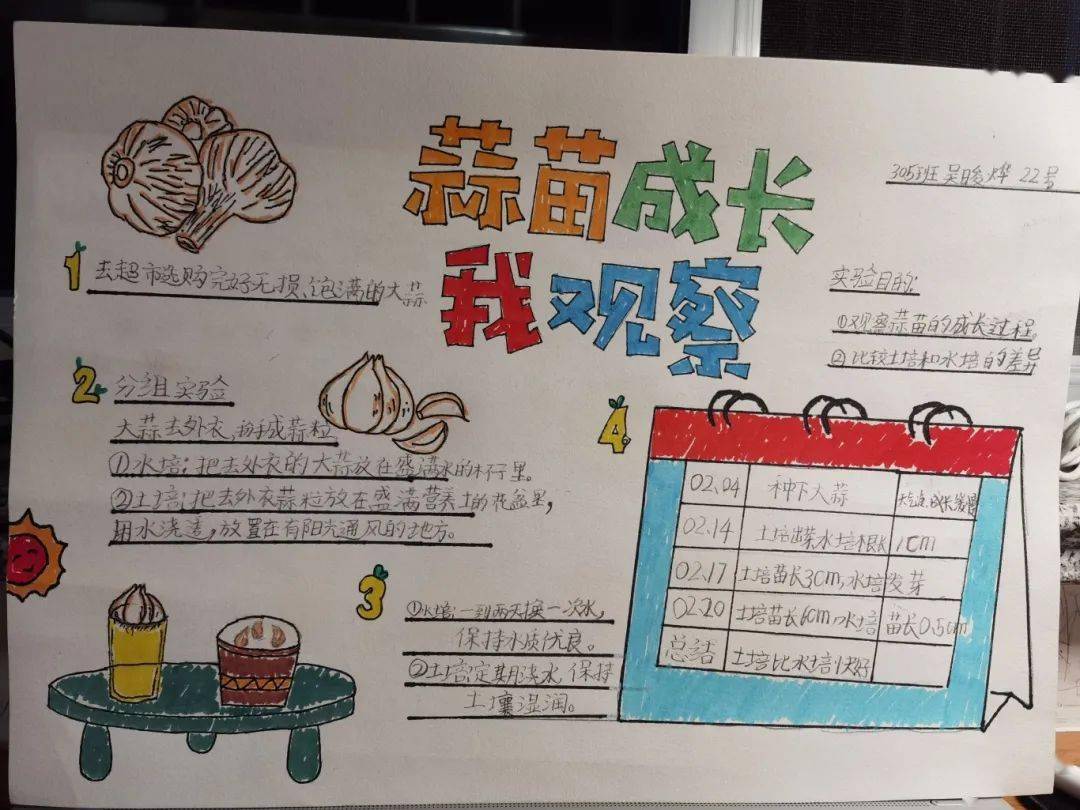 蒜苗成长
我观察
305班 吴晙烨 22号
实验目的:
①观察蒜苗的成长过程,
②比较土培和水培的差异
1 去超市选购完好无损、饱满的大蒜
2 分组实验
大蒜去外衣,掰成蒜粒
①水培:把去外衣的大蒜放在盛满水的杯子里。
②土培:把去外衣蒜粒放在盛满营养土的花盆里,
用水浇透,放置在有阳光通风的地方。
3
①水培:一到两天换一次水,
保持水质优良。
②土培:定期浇水,保持
土壤湿润。
4
02.04 种下大蒜 天气冷,成长缓慢
02.14 土培出芽水培根长 1cm
02.17 土培苗长3cm,水培发芽
02.20 土培苗长6cm,水培苗长0.5cm
总结 土培比水培快好